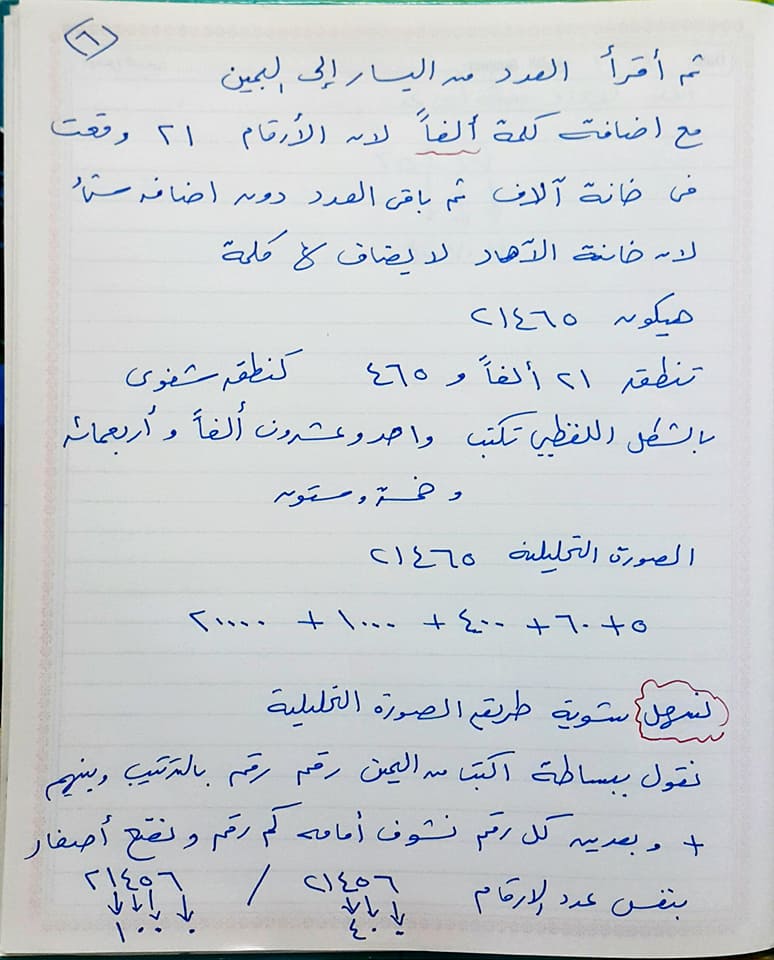 ٦
ثم أقرأ العدد من اليسار إلى اليمين
مع اضافة كلمة ألفاً لان الأرقام ٢١ وقعت
فى خانة آلاف ثم باقى العدد دون اضافه شئ
لان خانة الآحاد لا يضاف لها كلمة
هيكون ٢١٤٦٥
تنطق ٢١ ألفاً و ٤٦٥ كنطق شفوى
بالشكل اللفظي تكتب واحد وعشرون ألفاً و أربعمائه
و خمسة وستون
الصورة التحليلية ٢١٤٦٥
٥ + ٦٠ + ٤٠٠ + ١٠٠٠ + ٢٠٠٠٠
نسهل شوية طريقة الصورة التحليلية
نقول ببساطة اكتب من اليمين رقم رقم بالترتيب وبينهم
+ وبعدين كل رقم نشوف أمامه كم رقم و نضع أصفار
بنفس عدد الارقام ٢١٤٥٦ / ٢١٤٥٦
٤٠٠ ١٠٠٠